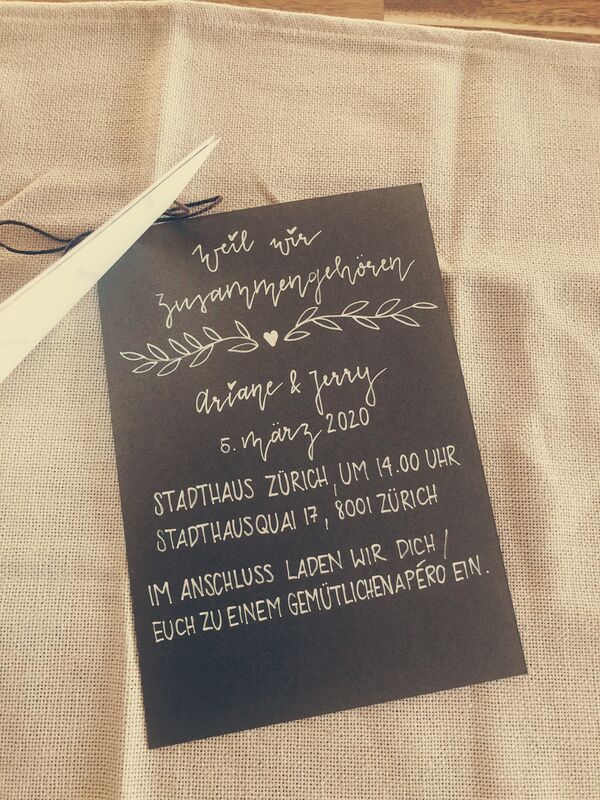 weil wir
zusammengehören
Ariane & Jerry
5. märz 2020
STADTHAUS ZÜRICH, UM 14.00 UHR
STADTHAUSQUAI 17, 8001 ZÜRICH
IM ANSCHLUSS LADEN WIR DICH /
EUCH ZU EINEM GEMÜTLICHENAPÉRO EIN.